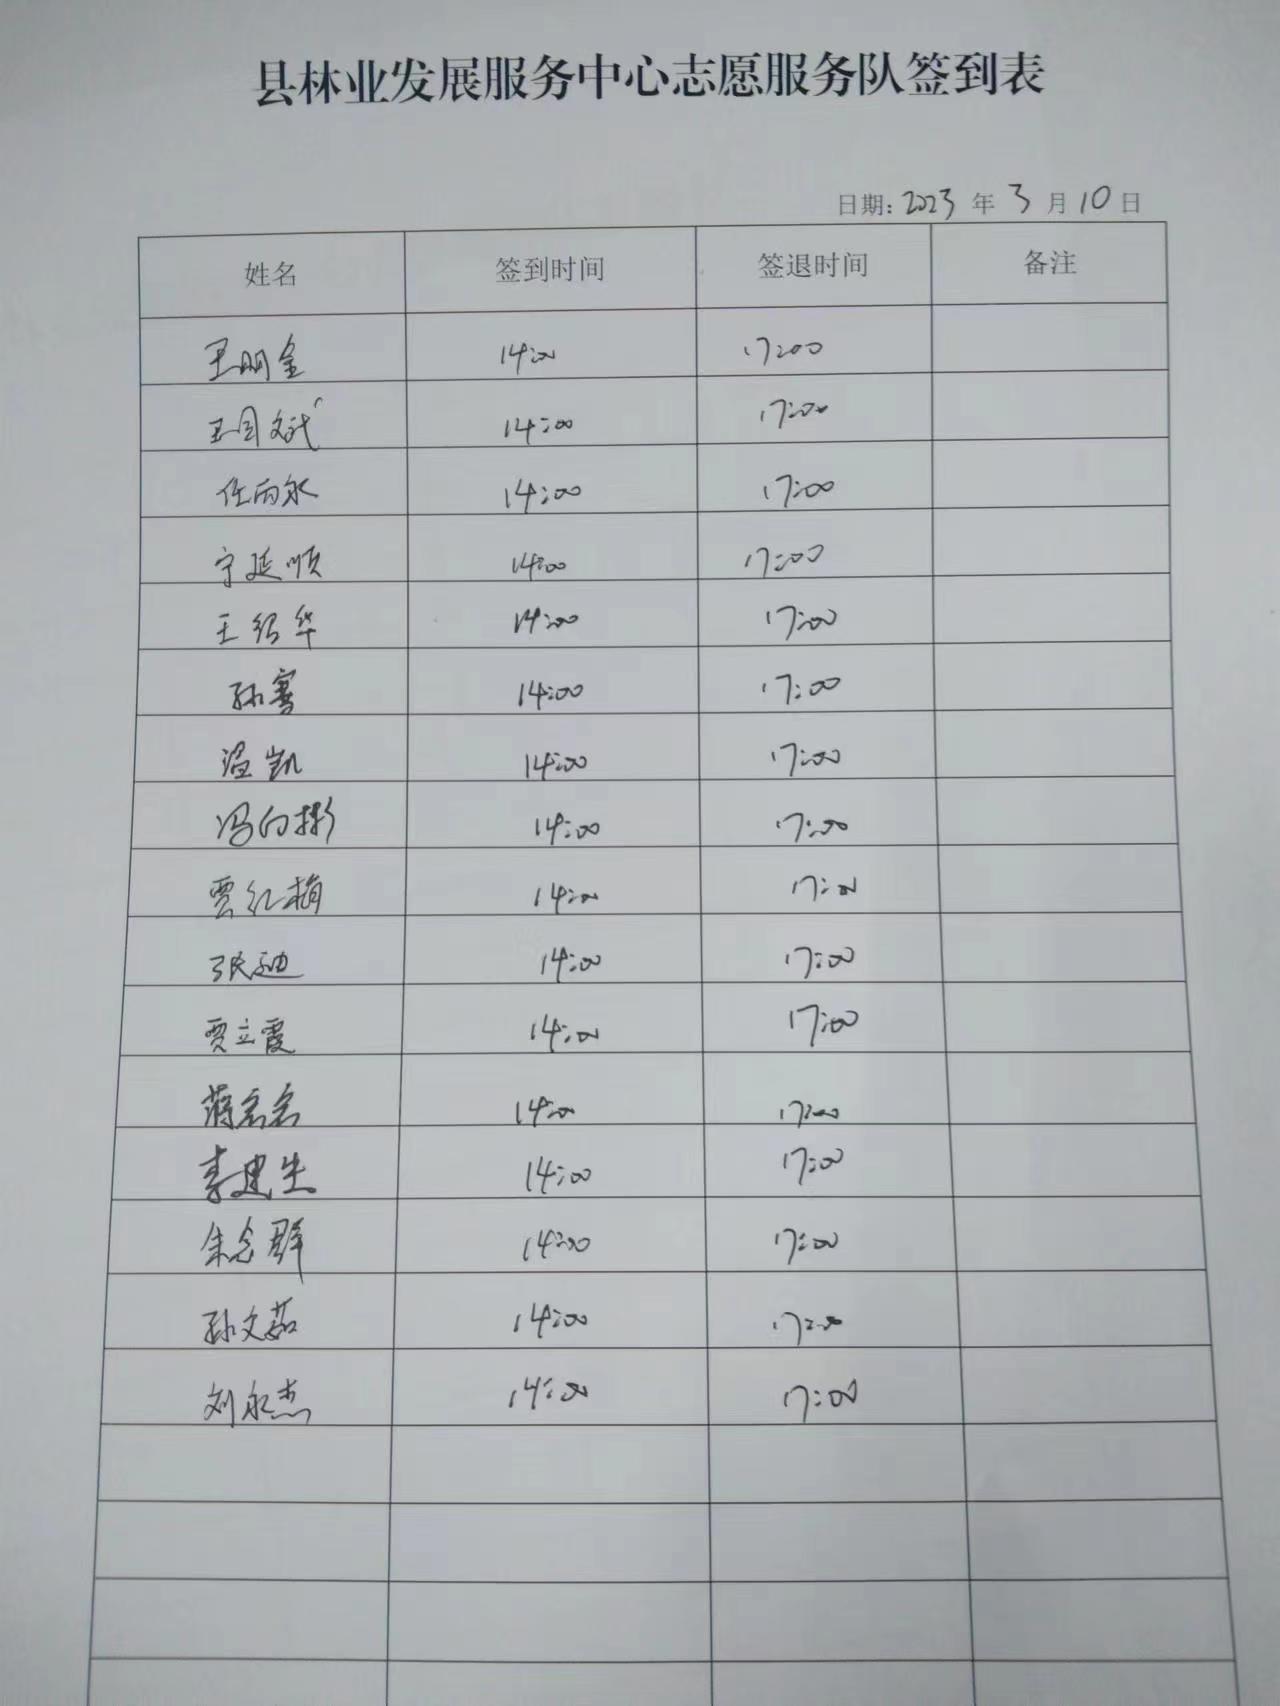 县林业发展服务中心志愿服务队签到表
日期: 2023 年 3 月 10 日
姓名 签到时间 签退时间 备注
王明金 14:00 17:00
王国斌 14:00 17:00
任丙永 14:00 17:00
宁延顺 14:00 17:00
王绍华 14:00 17:00
孙赛 14:00 17:00
温凯 14:00 17:00
冯向彬 14:00 17:00
贾红梅 14:00 17:00
张迪 14:00 17:00
贾立霞 14:00 17:00
蒋名名 14:00 17:00
李建生 14:00 17:00
朱念群 14:00 17:00
孙文茹 14:00 17:00
刘永杰 14:00 17:00